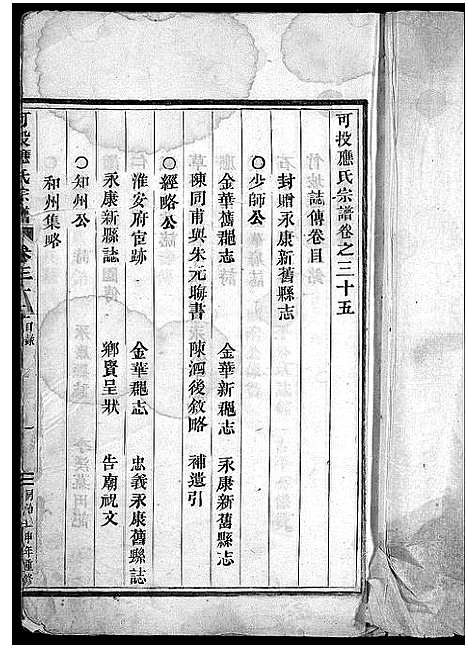 可投應氏宗譜卷之三十五
誌傳卷目
封贈永康新舊縣志
○少師公
金華舊郡志 金華新郡志 永康新舊縣志
陳同甫與朱元晦書 陳泗後敘略 補遺引
○經略公
淮安府宦跡 金華郡志 忠義永康舊縣誌
永康新縣誌 鄉賢呈狀 告廟祝文
○知州公
和州集略
可投應氏宗譜 卷三十 目錄 一 同治 申年重修